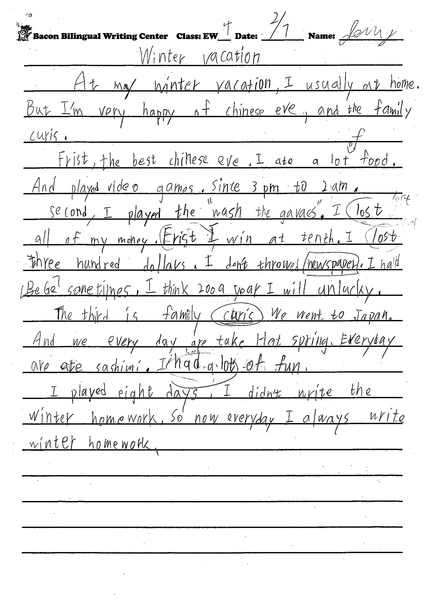 Bacon Bilingual Writing Center Class: EW 4 Date: 2/7 Name: Jerry
Winter vacation
At my winter vacation, I usually at home.
But I'm very happy of chinese eve, and the family
curis.
of
Frist, the best chinese eve. I ate a lot food.
And played video games. Since 3 pm to 2 am.
second, I played the "wash the games". I lost lost
all of my money. Frist I win at tenth. I lost
three hundred dollars. I don't throwed newspaper. I had
sometimes. I think 2009 year I will unlucky.
The third is family curis We went to Japan.
And we every day are take Hot spring. Everyday
are ate sashimi. I had a lot of fun.
I played eight days. I didn't write the
winter homework. So now everyday I always write
winter homework.